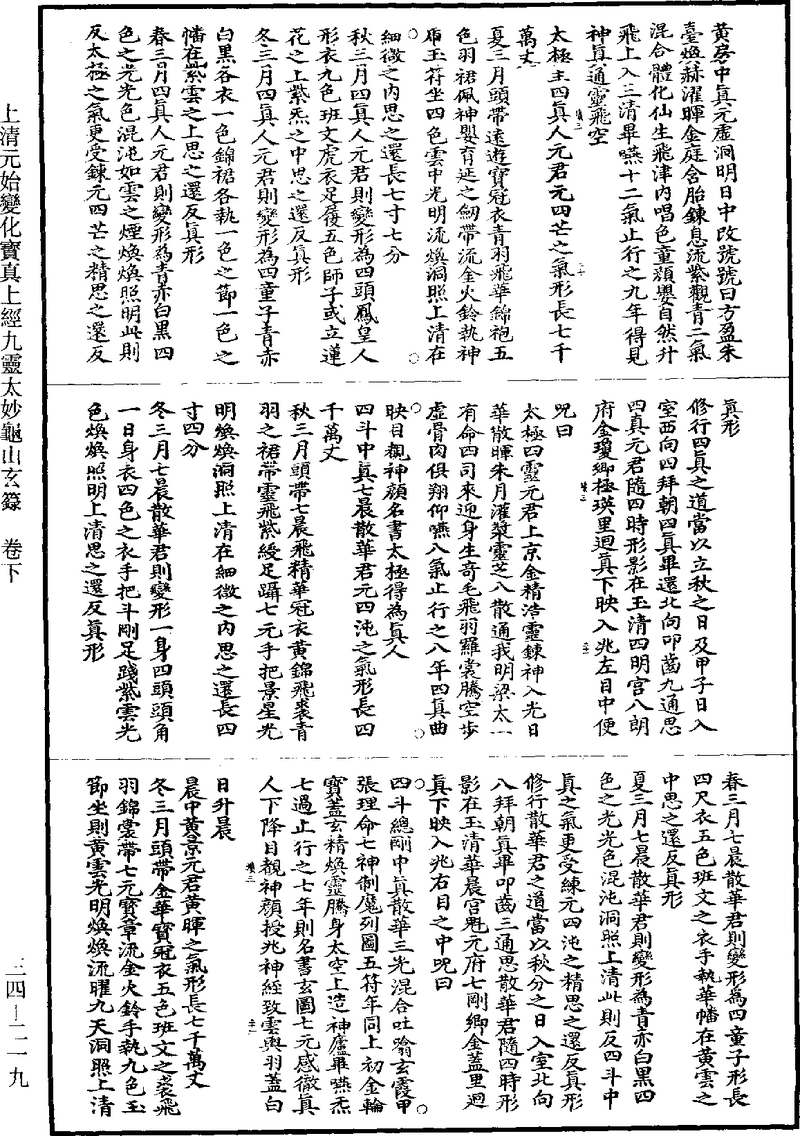 黃房中真元虛洞明日中改號號曰方盈朱
臺煥赫濯暉金庭含胎鍊息流紫觀青二氣
混合體化仙生飛津內唱色童顏嬰自然升
飛上入三清畢嚥十二氣止行之九年得見
神真通靈飛空
太極主四真人元君元四芒之氣形長七千
萬丈
夏三月頭帶遠遊寶冠衣青羽飛華錦袍五
色羽裙佩神嬰育延之劒帶流金火鈴執神
虎玉符坐四色雲中光明流煥洞照上清在
細微之內思之還長七寸七分
秋三月四真人元君則變形為四頭鳳皇人
形衣九色班文虎衣足履五色師子或立蓮
花之上紫炁之中思之還反真形
冬三月四真人元君則變形為四童子青赤
白黑各衣一色錦裙各執一色之節一色之
幡在紫雲之上思之還反真形
春三月四真人元君則變形為青赤白黑四
色之光光色混沌如雲之煙煥煥照明此則
反太極之氣更受鍊元四芒之精思之還反
真形
修行四真之道當以立秋之日及甲子日入
室西向四拜朝四真畢還北向叩齒九通思
四真元君隨四時形影在玉清四明宮八朗
府金瓊鄉極瑛里迴真下映入兆左目中便
咒曰
太極四靈元君上京金精浩靈鍊神入光日
華散暉朱月灌漿靈芝八散通我明梁太一
有命四司來迎身生奇毛飛羽羅裳騰空步
虛骨肉俱翔仰嚥八氣止行之八年四真曲
映目觀神顏名書太極得為真人
四斗中真七晨散華君元四沌之氣形長四
千萬丈
秋三月頭帶七晨飛精華冠衣黃錦飛裘青
羽之裙帶靈飛紫綬足躡七元手把景星光
明煥煥洞照上清在細微之內思之還長四
寸四分
冬三月七晨散華君則變形一身四頭頭角
一日身衣四色之衣手把斗剛足踐紫雲光
色煥煥照明上清思之還反真形
春三月七晨散華君則變形為四童子形長
四尺衣五色班文之衣手執華幡在黃雲之
中思之還反真形
夏三月七晨散華君則變形為青赤白黑四
色之光光色混沌洞照上清此則反四斗中
真之氣更受練元四沌之精思之還反真形
修行散華君之道當以秋分之日入室北向
八拜朝真畢叩齒三通思散華君隨四時形
影在玉清華晨宮魁元府七剛鄉金蓋里迴
真下映入兆右目之中咒曰
四斗總剛中真散華三光混合吐瑜玄霞甲
張理命七神制魔列圖五符年同上初金輪
寶蓋玄精煥靈騰身太空上造神廬畢嚥炁
七過止行之七年則名書玄圖七元感徹真
人下降目觀神顏授兆神經致雲輿羽蓋白
日升晨
晨中黃景元君黃暉之氣形長七千萬丈
冬三月頭帶金華寶冠衣五色班文之裘飛
羽錦裳帶七元寶章流金火鈴手執九色玉
節坐則黃雲光明煥煥流曜九天洞照上清
上清元始變化寶真上經九靈太妙龜山玄籙　卷下
三四—二一九